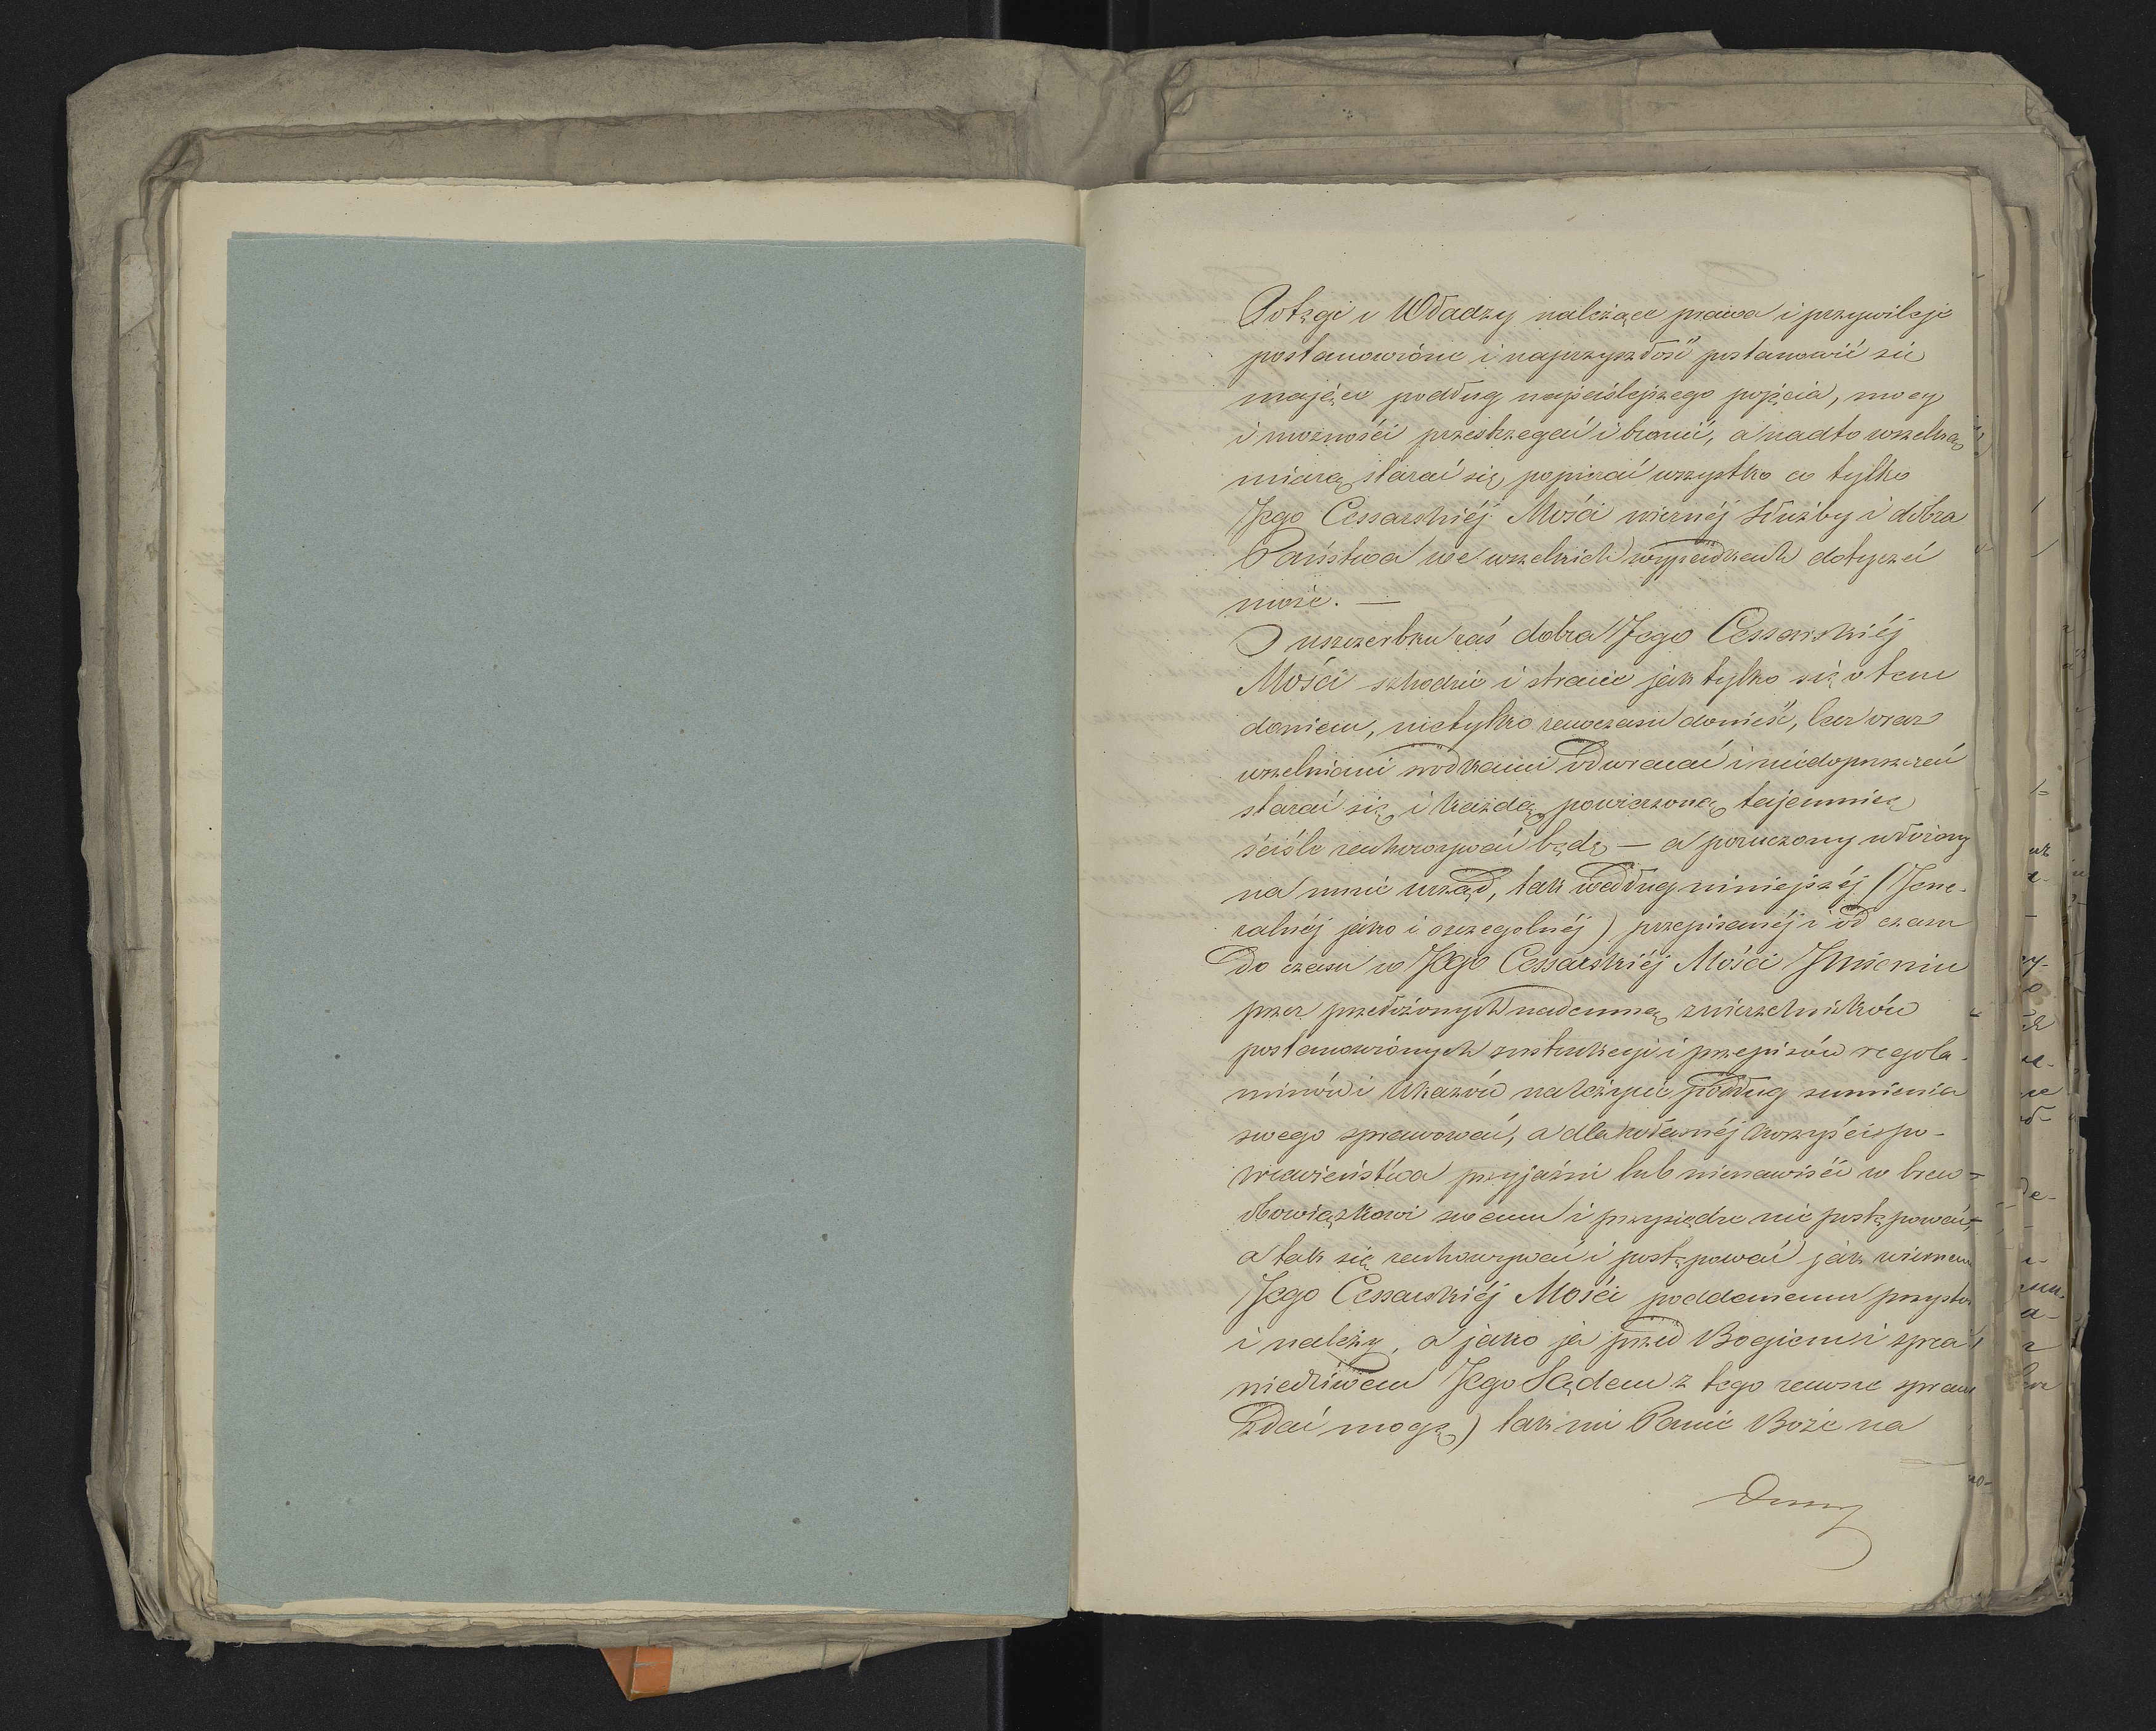 Potęgi i Władzy należące prawa i przywileje
postanowione i naprzyszłość postanowić się
mające podług najściślejszego pojęcia, mocy
i możności przestrzegać i bronić, a nadto wszelką
miarą starać się popierać wszystko co tylko
Jego Cessarskiéj Mości wiernéj służby i dobra
Państwa we wszelkich wypadkach dotyczeć
może. —
O uszczerbku zaś dobra Jego Cessarskiéj
Mości szkodzie i stracie jak tylko się o tem
dowiem, nietylko zawczasu donieść, lecz oraz
wszelkiemi środkami odwracać i niedopuszczać
starać się i każdą powierzoną tajemnicę
ściśle zachowywać będę — a poruczony włożony
na mnie urząd, tak według niniejszéj (Jene-
ralnéj jako i szczególnéj) przepisanéj i od czasu
do czasu w Jego Cessarskiéj Mości Jmieniu
przez przełożonych nademną zwierzchników
postanowionych instrukcyi i przepisów regola-
minów i Ukazów należycie podług sumienia
swego sprawować, a dla własnéj korzyści po-
krewieństwa przyjaźni lub nienawiści w brew
obowiązkowi swemu i przysiędze nie postępować,
a tak się zachowywać i postępować jak wiernemu
Jego Cessarskiéj Mości poddanemu przystoi
i należy, a jako ja przed Bogiem i spra
niedliwem Jego Sądem z tego zawsze spraw
zdać mogę) tak mi Panie Boże na